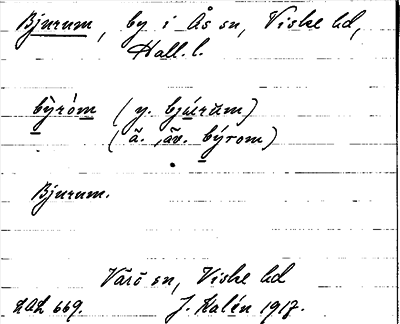 Bjurum, by i Ås sn, Viske hd,
Hall. l.
by̆róm (y. bjúrŭm)
(ä. äv. býrom)
Bjurum.
Värö sn, Viske hd
ZAL 669. J. Kalén 1917.